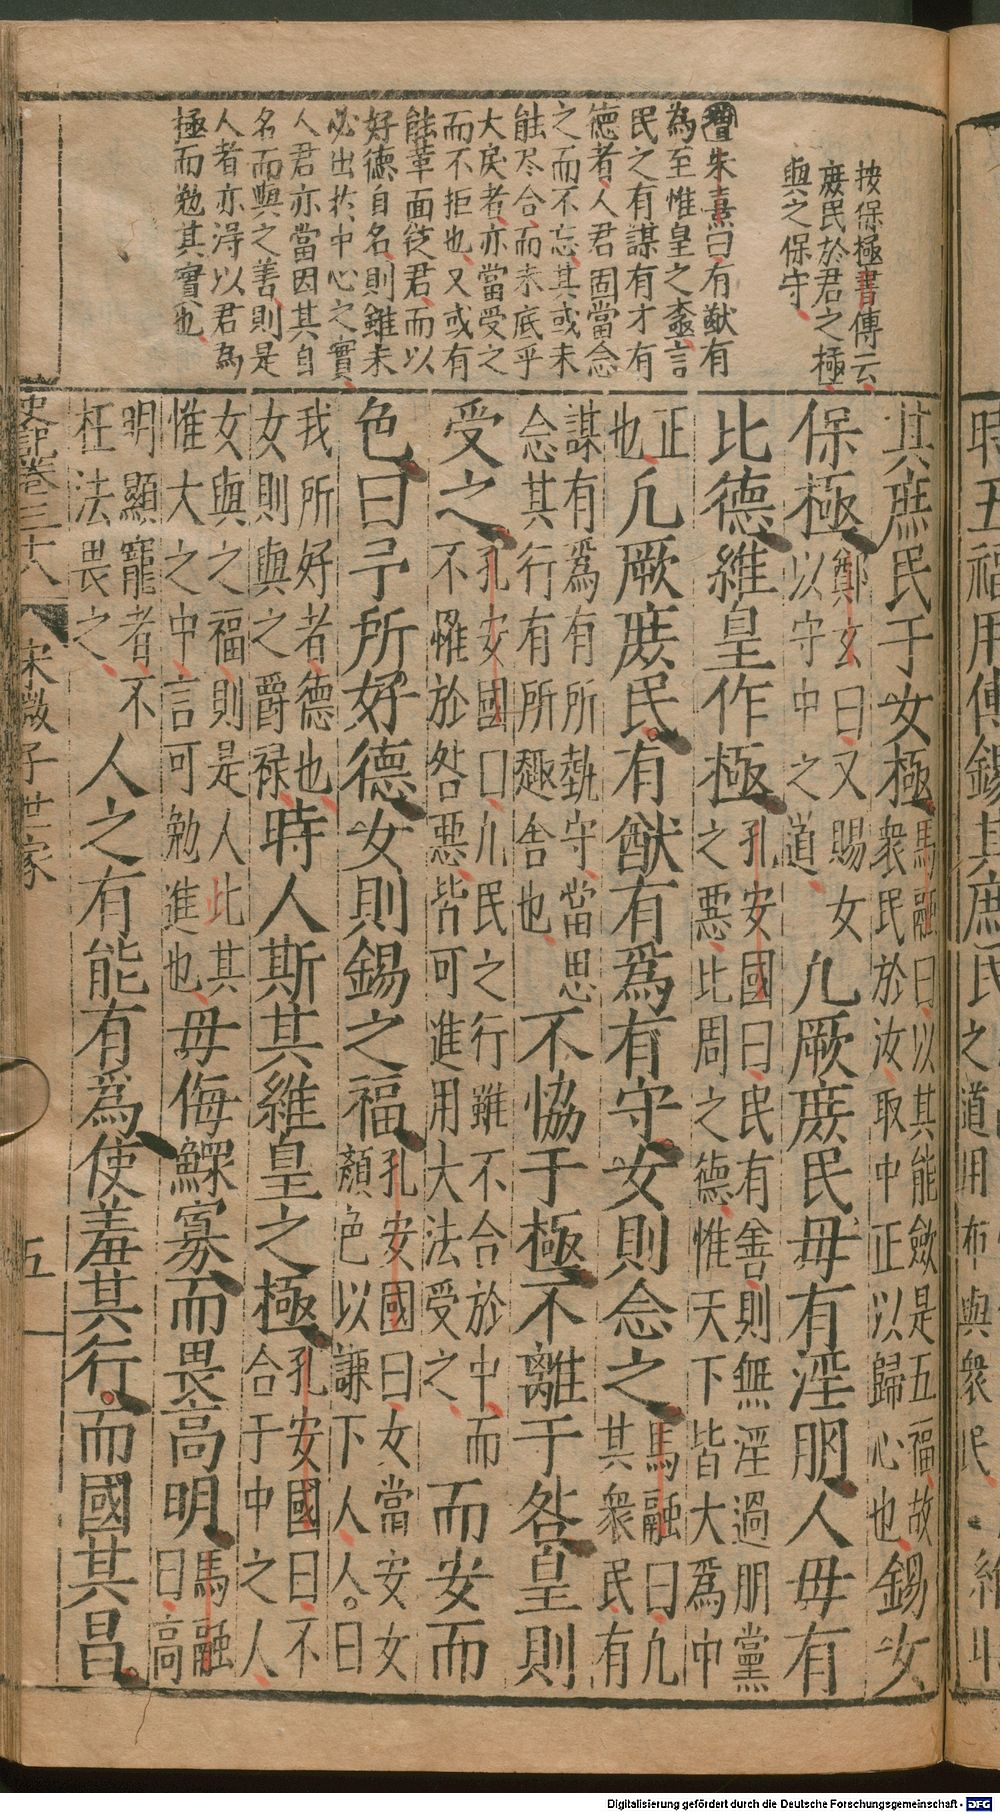 時五福用傅錫其庶民
之道用布與衆民
按保極書傳云
庶民於君之極
與之保守
增朱熹曰有猷有
為至惟皇之極言
民之有謀有才有
德者人君固當念
之而不忘其或未
能尽合而未底乎
大戾者亦當受之
而不拒也又或有
能革面從君而以
好德自名則雖未
必出於中心之實
人君亦當因其自
名而與之善則是
人者亦淂以君為
極而勉其實也
其庶民于女極馬融曰以其能斂是五福故衆民於汝取中正以歸心也錫女
保極鄭玄曰又賜女以守中之道凡厥庶民毋有淫朋人毋有
比德維皇作極孔安國曰民有善則無淫過朋黨之惡比周之德惟天下皆大爲中
正也凡厥庶民有猷有爲有守女則念之馬融曰凡其衆民有
謀有爲有所執守當思念其行有所趣舍也不恊于極不離于咎皇則
受之孔安國曰凡民之行雖不合於中而不罹於咎惡皆可進用大法受之而安而
色曰予所好德女則錫之福孔安國曰女當安女顏色以謙下人人曰
我所好者德也女則與之爵祿時人斯其維皇之極孔安國曰不合于中之人
女與之福則是人此其惟大之中言可勉進也毋侮鰥寡而畏高明馬融曰高
明顯寵者不枉法畏之人之有能有爲使羞其行而國其昌
史記卷三十八 宋微子世家 五
Digitalisierung gefördert durch die Deutsche Forschungsgemeinschaft - DFG